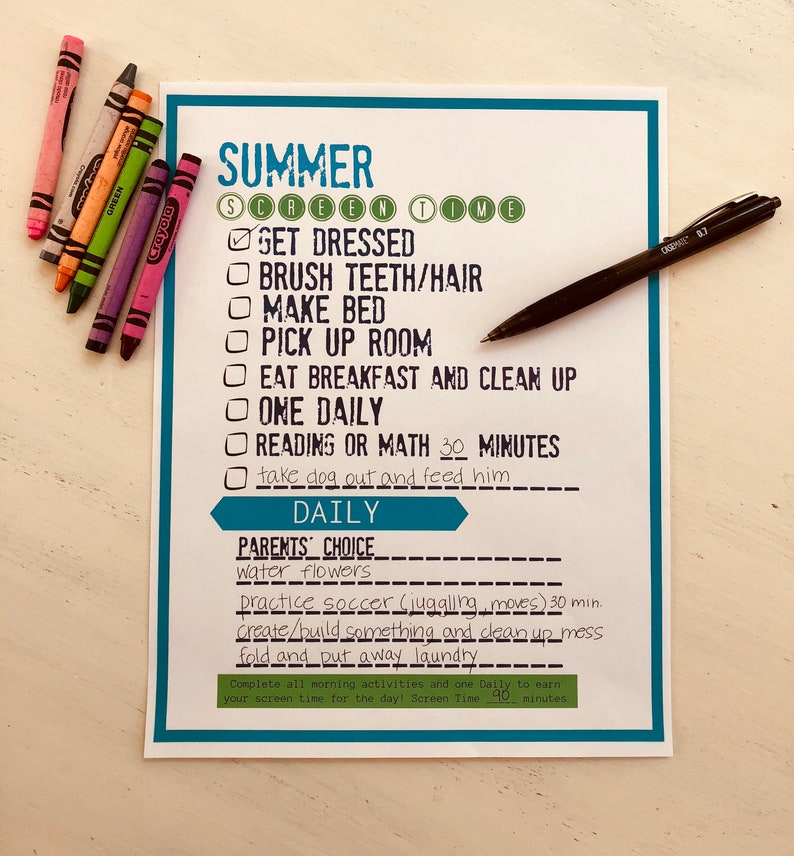 SUMMER
SCREEN TIME
GET DRESSED
BRUSH TEETH/HAIR
MAKE BED
PICK UP ROOM
EAT BREAKFAST AND CLEAN UP
ONE DAILY
READING OR MATH 30 MINUTES
take dog out and feed him
DAILY
PARENTS' CHOICE
water flowers
practice soccer (juggling, moves) 30 min.
create/build something and clean up mess
fold and put away laundry
Complete all morning activities and one Daily to earn
your screen time for the day! Screen Time 90 minutes
CASEMATE 0.7
Crayola.com
yellow orange
GREEN
Crayola